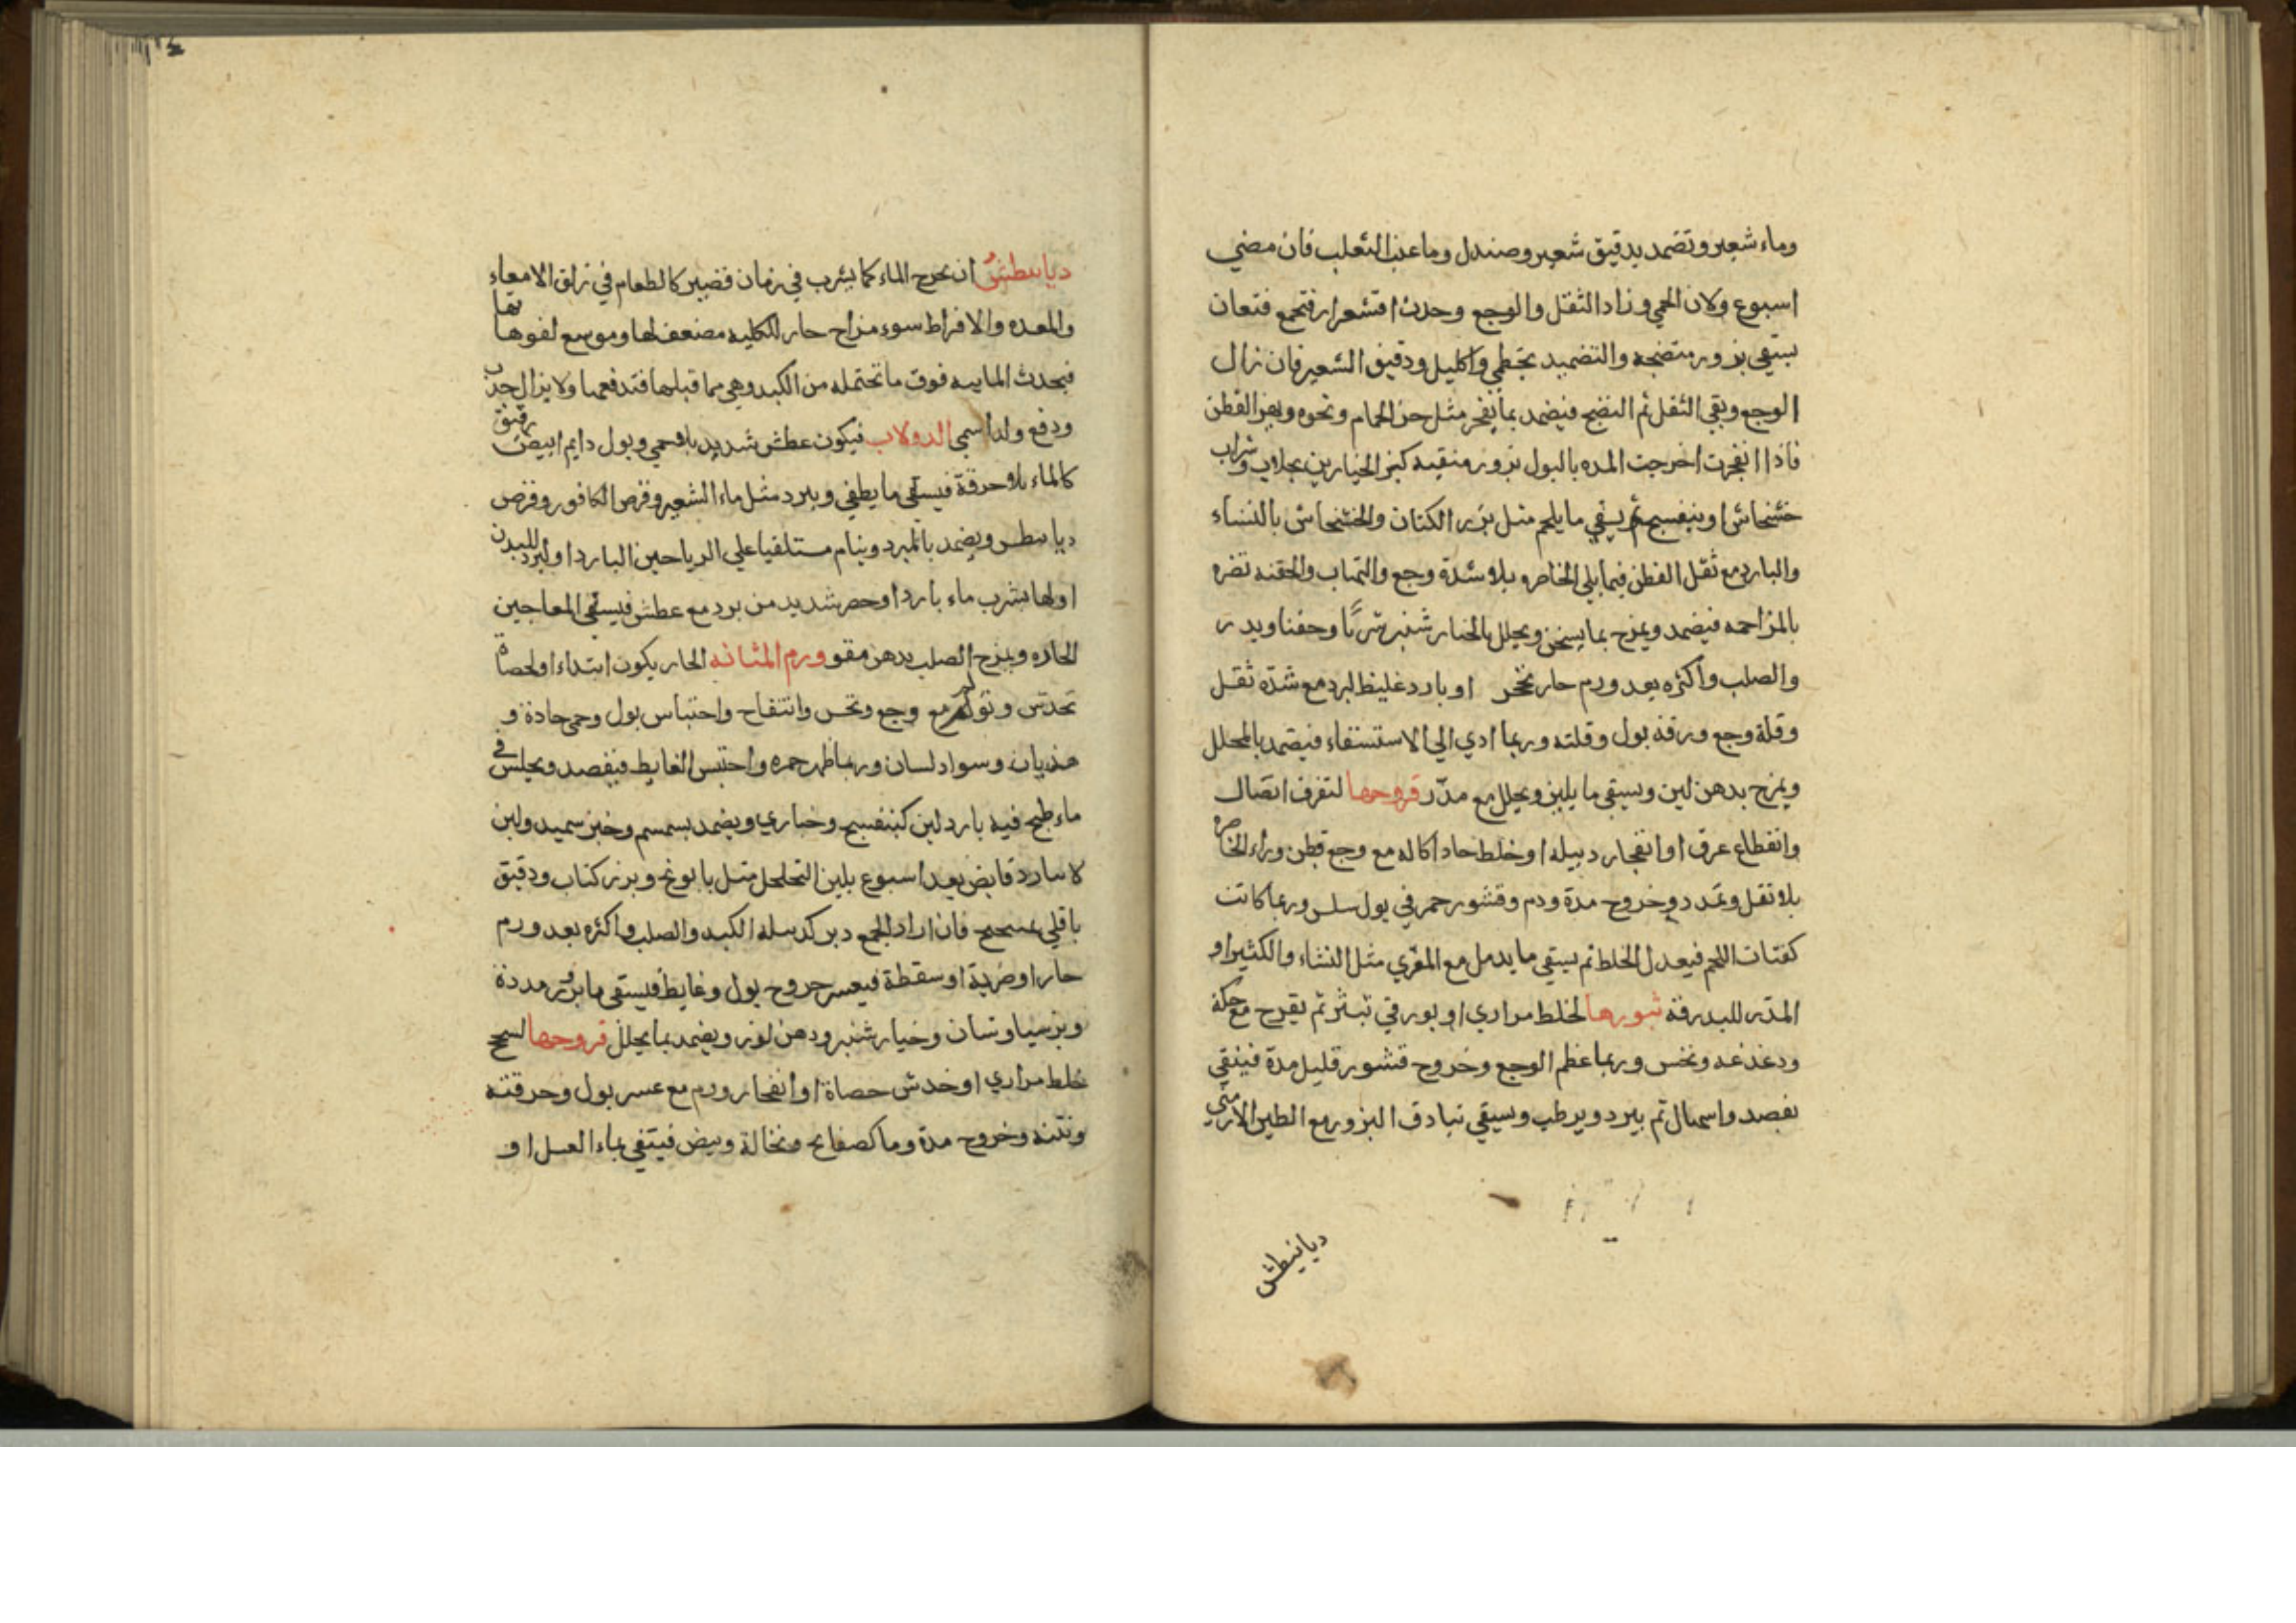 وماء شعير وتضمد بدقيق شعير وصندل وما عنب الثعلب فان مضي
اسبوع ولان الحمي وزاد الثقل والوجع وحدث اقشعرار فتجمع فتعان
بسقي بزور منضجه والتضميد بخطمي واكليل ودقيق الشعير فان زال
الوجع وبقي الثقل تم النضج فيضمد بما يفجر مثل خرء الحمام ونحوه ويهز القطن
فاذا انفجرت اخرجت المده بالبول بزور منقيه كبزر الخيارين بجلاب وشراب
خشخاش او بنفسج ثم يسقي ما يلحم مثل بزر الكتان والخشخاش بالنشاء
والبارد مع ثقل القطن فيما يلي الخاصره بلا شدة وجع والتهاب والحقنه تضره
بالمزاحمه فيضمد ويمرخ بما يسخن ويحلل بالخيار شنبر شربًا وحقنا ويدر
والصلب واكثره بعد ورم حار تحجر او بارد غليظ لبرد مع شدة ثقل
وقلة وجع ورقة بول وقلته وربما ادي الي الاستسقاء فيضمد بالمحلل
ويمرخ بدهن لين ويسقي ما يلين ويحلل مع مدّر قروحها لتفرق اتصال
وانقطاع عرق او انفجار دبيله او خلط حاد اكاله مع وجع قطن وراء الخاصره
بلا ثقل وتمدد وخروج مدة ودم وقشور حمر في بول سلس وربما كانت
كفتات اللحم فيعدل الخلط ثم يسقي ما يدمل مع المغري مثل النشاء والكثيرا و
المدّر للبدرقة بثورها لخلط مراري او بورقي تبثر ثم يقرح مع حكة
ودغدغه ونخس وربما عظم الوجع وخروج قشور قليل مدة فينقي
بفصد واسهال ثم يبرد ويرطب ويسقي بنادق البزور مع الطين الارمني
ديانيطش
ديابيطش ان يخرج الماء كما يشرب في زمان قصير كالطعام في زلق الامعاء
والمعده والافراط سوء مزاج حار للكليه مضعف لها وموسع لفوهاتها
فيجذب المايية فوق ما تحتمله من الكبد وهي مما قبلها فتدفعها ولا يزال جذب
ودفع ولذا سمي الدولاب فيكون عطش شديد بلا حمي وبول دايم ابيض رقيق
كالماء بلا حرقة فيسقي ما يطفي ويبرد مثل ماء الشعير وقرص الكافور وقرص
ديابيطس ويضمد بالمبرد وينام مستلقيا علي الرياحين البارد او لبرد للبدن
او لها بشرب ماء بارد او حصر شديد من برد مع عطش فيسقي المعاجين
الحاره ويمرخ الصلب بدهن مقو ورم المثانه الحار يكون ابتداء او لحصاة
تخدش وتولم مع وجع ونخس وانتفاخ واحتباس بول وحمي حادة و
هذيان وسواد لسان وربما ظهر حمره واحتبس الغايط فيفصد ويجلس في
ماء طبخ فيه بارد لين كبنفسج وخبازي ويضمد بسمسم وخبز سميد ولبن
لا بارد قابض بعد اسبوع بلين التحلحل مثل بابونج وبزر كتاب ودقيق
باقلي فان اراد الجمع دبر كدبيلة الكبد والصلب واكثره بعد ورم
حار او ضربة او سقطة فيعسر خروج بول وغايط فيسقي ما بزر مددة
وبرسياوشان وخيار شنبر ودهن لوز ويضمد بما يحلل قروحها لسحج
خلط مراري او خدش حصاة او انفجار ورم مع عسر بول وحرقته
ونتنه وخروج مدة وما كصفايح ونخالة وبيض فينقي بماء العسل او